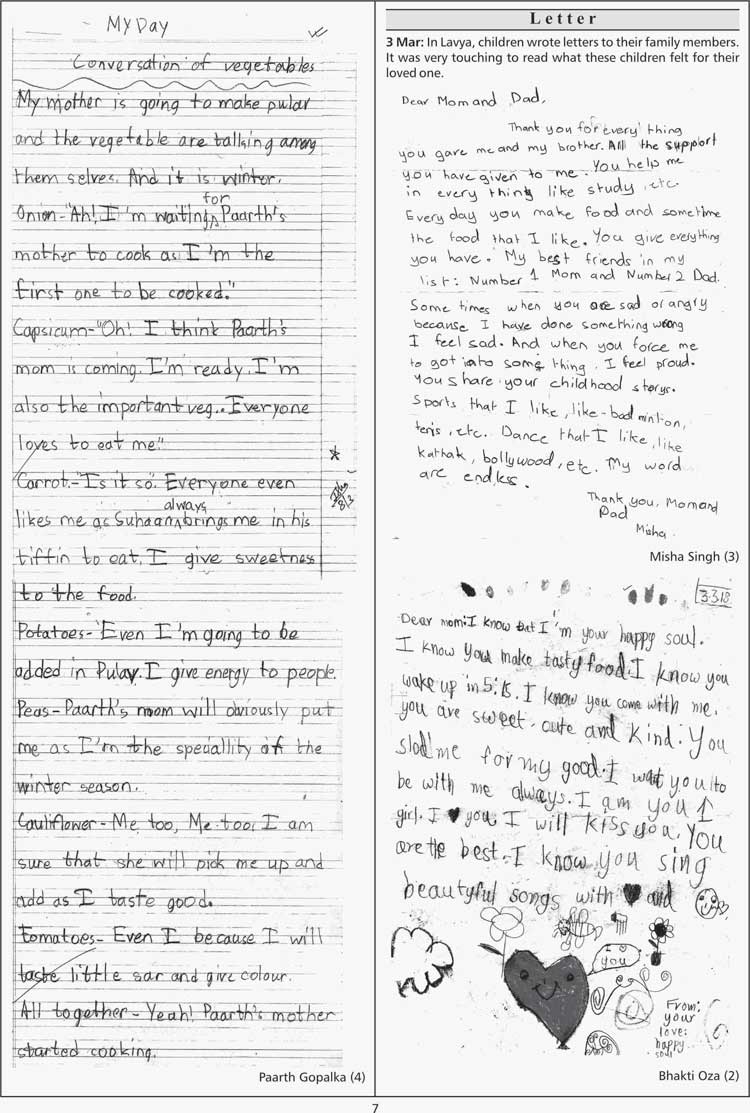 MY DAY
Conversation of vegetables
My mother is going to make pulav
and the vegetable are talking among
them selves. And it is winter.
Onion-"Ah! I'm waiting for Paarth's
mother to cook as I'm the
first one to be cooked."
Capsicum-"Oh! I think Paarth's
mom is coming. I'm ready. I'm
also the important veg.. Everyone
loves to eat me."
Carrot-"Is it so". Everyone even
likes me as Suhaan always brings me in his
tiffin to eat. I give sweetness
to the food.
Potatoes-'Even I'm going to be
added in Pulav. I give energy to people.
Peas-Paarth's mom will obviously put
me as I'm the speciallity of the
winter season.
Cauliflower-Me, too, Me too, I am
sure that she will pick me up and
add as I taste good.
Tomatoes-Even I because I will
taste little sar and give colour.
All together-Yeah! Paarth's mother
started cooking.
8/3
Paarth Gopalka (4)
Letter
3 Mar: In Lavya, children wrote letters to their family members.
It was very touching to read what these children felt for their
loved one.
Dear Mom and Dad,
Thank you for every thing
you gave me and my brother. All the support
you have given to me. You help me
in every thing like study, etc.
Every day you make food and sometime
the food that I like. You give everything
you have. My best friends in my
list: Number 1 Mom and Number 2 Dad.
Some times when you are sad or angry
because I have done something wrong
I feel sad. And when you force me
to got into some thing, I feel proud.
You share your childhood storys.
Sports that I like, like-bad minton,
tenis, etc. Dance that I like, like
kathak, bollywood, etc. My word
are endless.
Thank you, Mom and
Dad
Misha.
Misha Singh (3)
3.3.18
Dear mom: I know that I'm your happy soul.
I know you make tasty food. I know you
wake up in 5:15. I know you come with me.
you are sweet, cute and kind. You
slod me for my good. I want you to
be with me always. I am you 1
girl. I ♥ you. I will kiss you. You
are the best. I know you sing
beautyful songs with ♥ and
I ♥
you
From:
your
love:
happy
soul
Bhakti Oza (2)
7